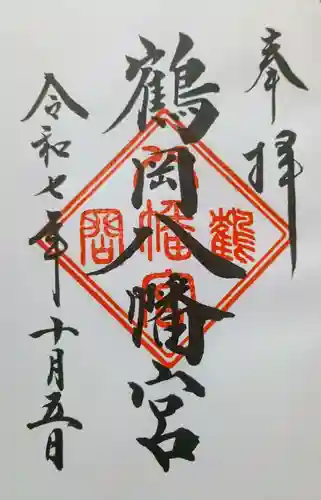 奉拝
鶴岡八幡宮
令和七年
十月五日
鶴
八幡宮